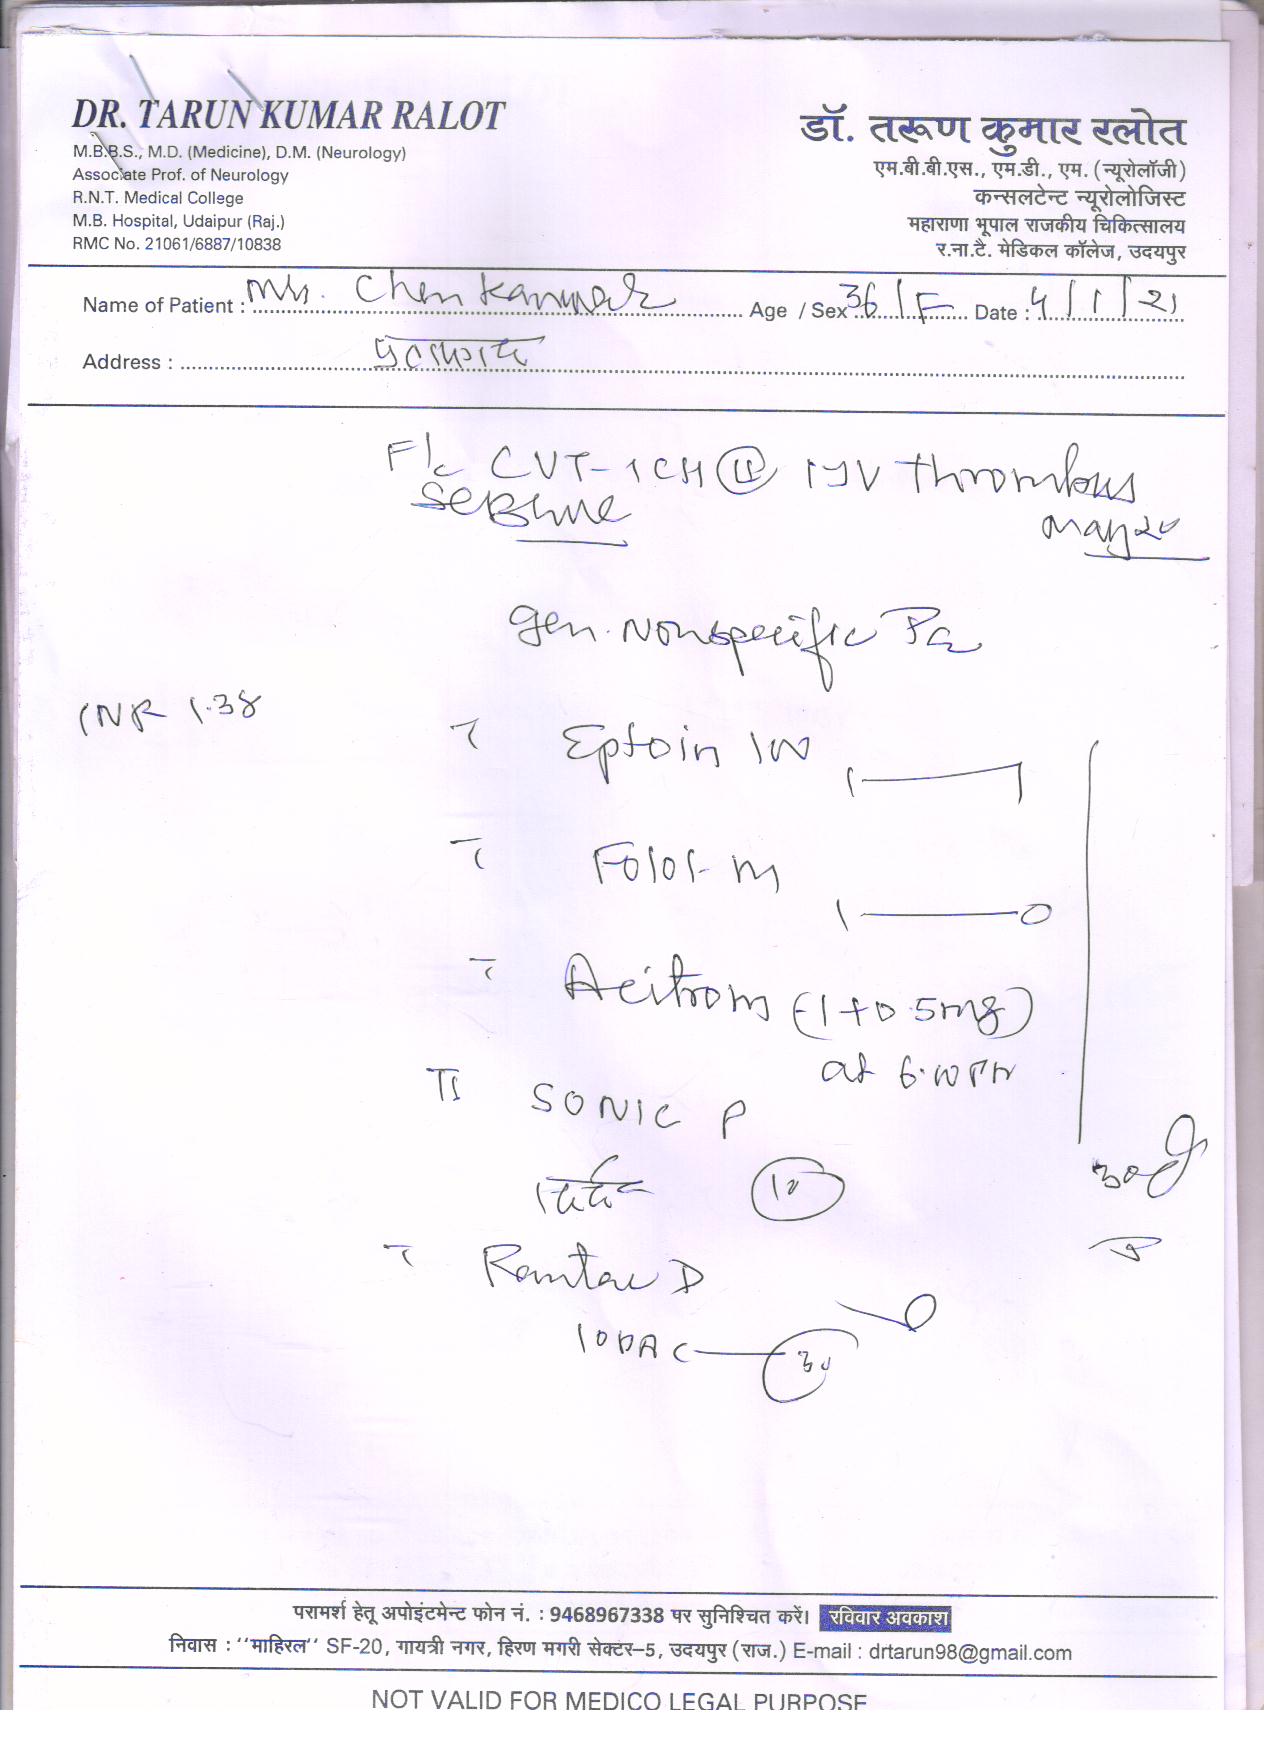 DR. TARUN KUMAR RALOT
M.B.B.S., M.D. (Medicine), D.M. (Neurology)
Associate Prof. of Neurology
R.N.T. Medical College
M.B. Hospital, Udaipur (Raj.)
RMC No. 21061/6887/10838
डॉ. तरूण कुमार रलोत
एम.बी.बी.एस., एम.डी., एम. (न्यूरोलॉजी)
कन्सलटेन्ट न्यूरोलोजिस्ट
महाराणा भूपाल राजकीय चिकित्सालय
र.ना.टै. मेडिकल कॉलेज, उदयपुर
Name of Patient : Mrs. Chen Kanwar Age / Sex 36/F Date : 4/1/21
Address :
F/c CVT-ICH @ IJV thrombus
seizure May 20
Gen. Nonspecific
INR 1.38
T Eptoin 100
1 — 1
T Folol-M
1 — 0
T Acitrom (1+0.5mg)
at 6.00 PM
T SONIC P
10
30
T Rantac D
10 DAC — 30
परामर्श हेतू अपोइंटमेन्ट फोन नं. : 9468967338 पर सुनिश्चित करें। रविवार अवकाश
निवास : ''माहिरल'' SF-20, गायत्री नगर, हिरण मगरी सेक्टर–5, उदयपुर (राज.) E-mail : drtarun98@gmail.com
NOT VALID FOR MEDICO LEGAL PURPOSE